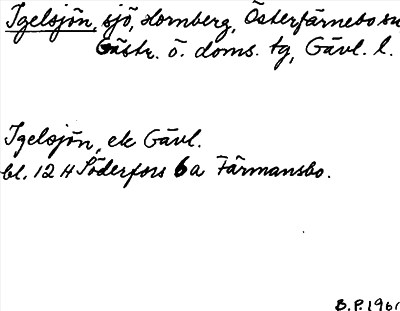 Igelsjön, sjö, Hornberg, Österfärnebo sn,
Gästr. ö. doms. tg, Gävl. l.
Igelsjön, ek Gävl.
bl. 12 H Söderfors 6a Färmansbo.
B.P. 196